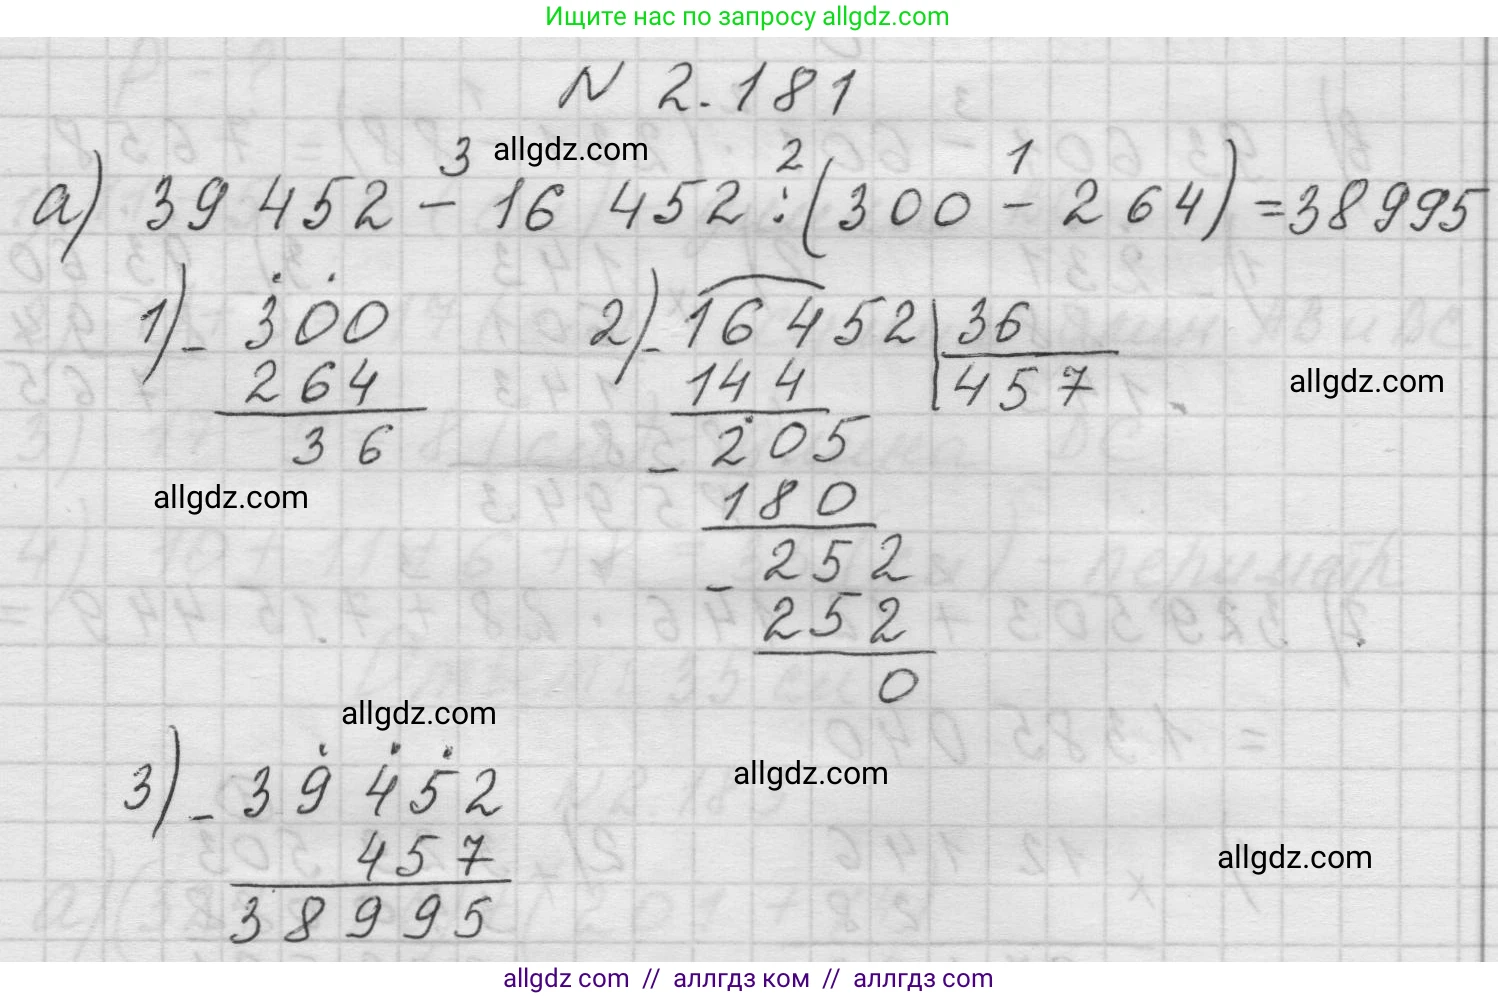 Ищите нас по запросу allgdz.com
N 2.181
allgdz.com
3 2 1
а) 39 452 - 16 452 : (300 - 264) = 38995
1) - 300
264
36
2) - 16 452 | 36
144 457
- 205
180
- 252
252
0
allgdz.com
allgdz.com
allgdz.com
3) - 39 452
457
38995
allgdz.com
allgdz.com
allgdz.com // аллгдз ком // аллгдз.com